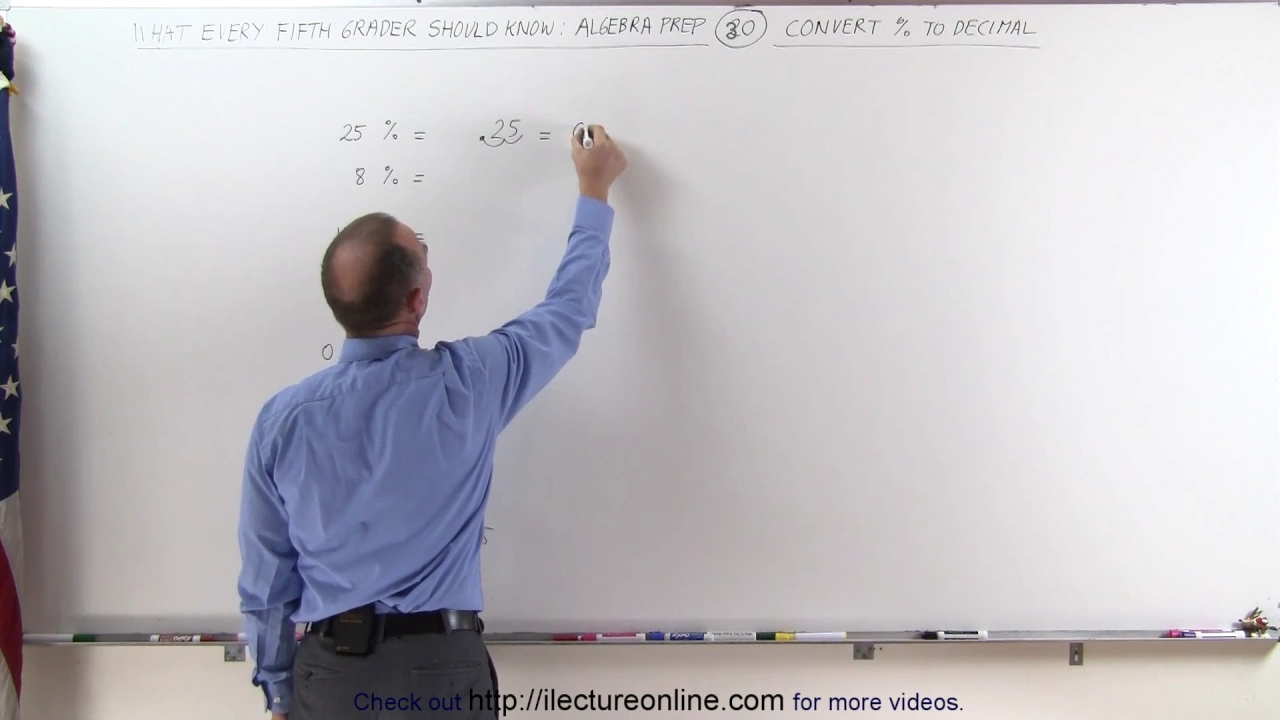 WHAT EVERY FIFTH GRADER SHOULD KNOW: ALGEBRA PREP 30 CONVERT % TO DECIMAL
25 % = .25 =
8 % =
=
0
5
Check out http://ilectureonline.com for more videos.